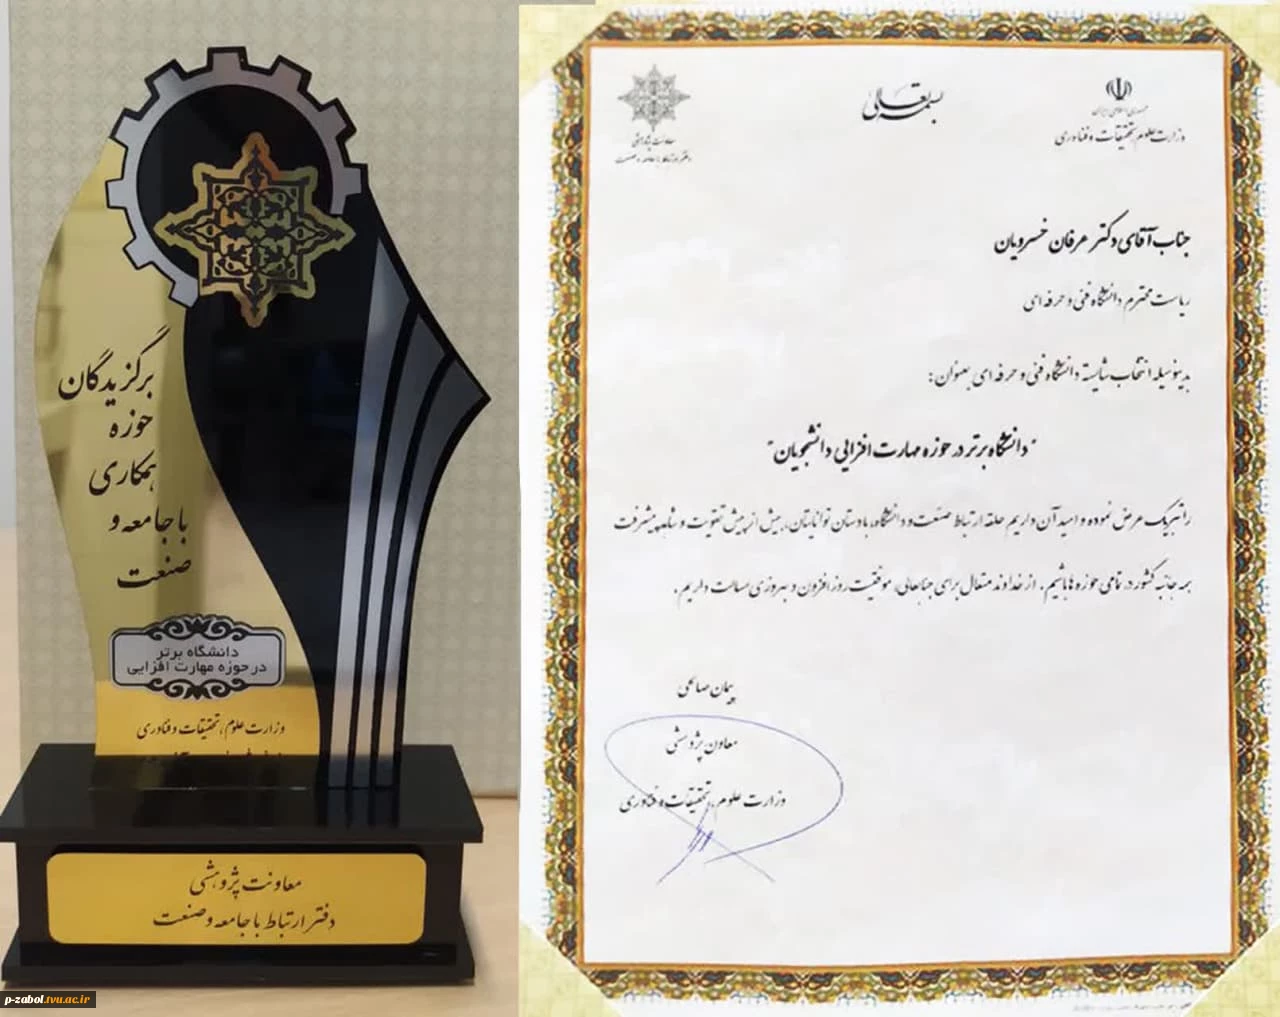 برگزیدگان
حوزه
همکاری
با جامعه و
صنعت
دانشگاه برتر
در حوزه مهارت افزایی
وزارت علوم، تحقیقات و فناوری
معاونت پژوهشی
دفتر ارتباط با جامعه و صنعت
p-zabol.tvu.ac.ir
بسمه تعالی
جمهوری اسلامی ایران
وزارت علوم، تحقیقات و فناوری
معاونت پژوهشی
دفتر ارتباط با جامعه و صنعت
جناب آقای دکتر عرفان خسرویان
ریاست محترم دانشگاه فنی و حرفه ای
بدینوسیله انتخاب شایسته دانشگاه فنی و حرفه ای بعنوان:
"دانشگاه برتر در حوزه مهارت افزایی دانشجویان"
را تبریک عرض نموده و امید آن داریم حلقه ارتباط صنعت و دانشگاه، با دستان توانایتان، بیش از پیش تقویت و شاهد پیشرفت
همه جانبه کشور در تمامی حوزه ها باشیم. از خداوند متعال برای جنابعالی، موفقیت روزافزون و بهروزی مسالت داریم.
پیمان صالحی
معاون پژوهشی
وزارت علوم، تحقیقات و فناوری